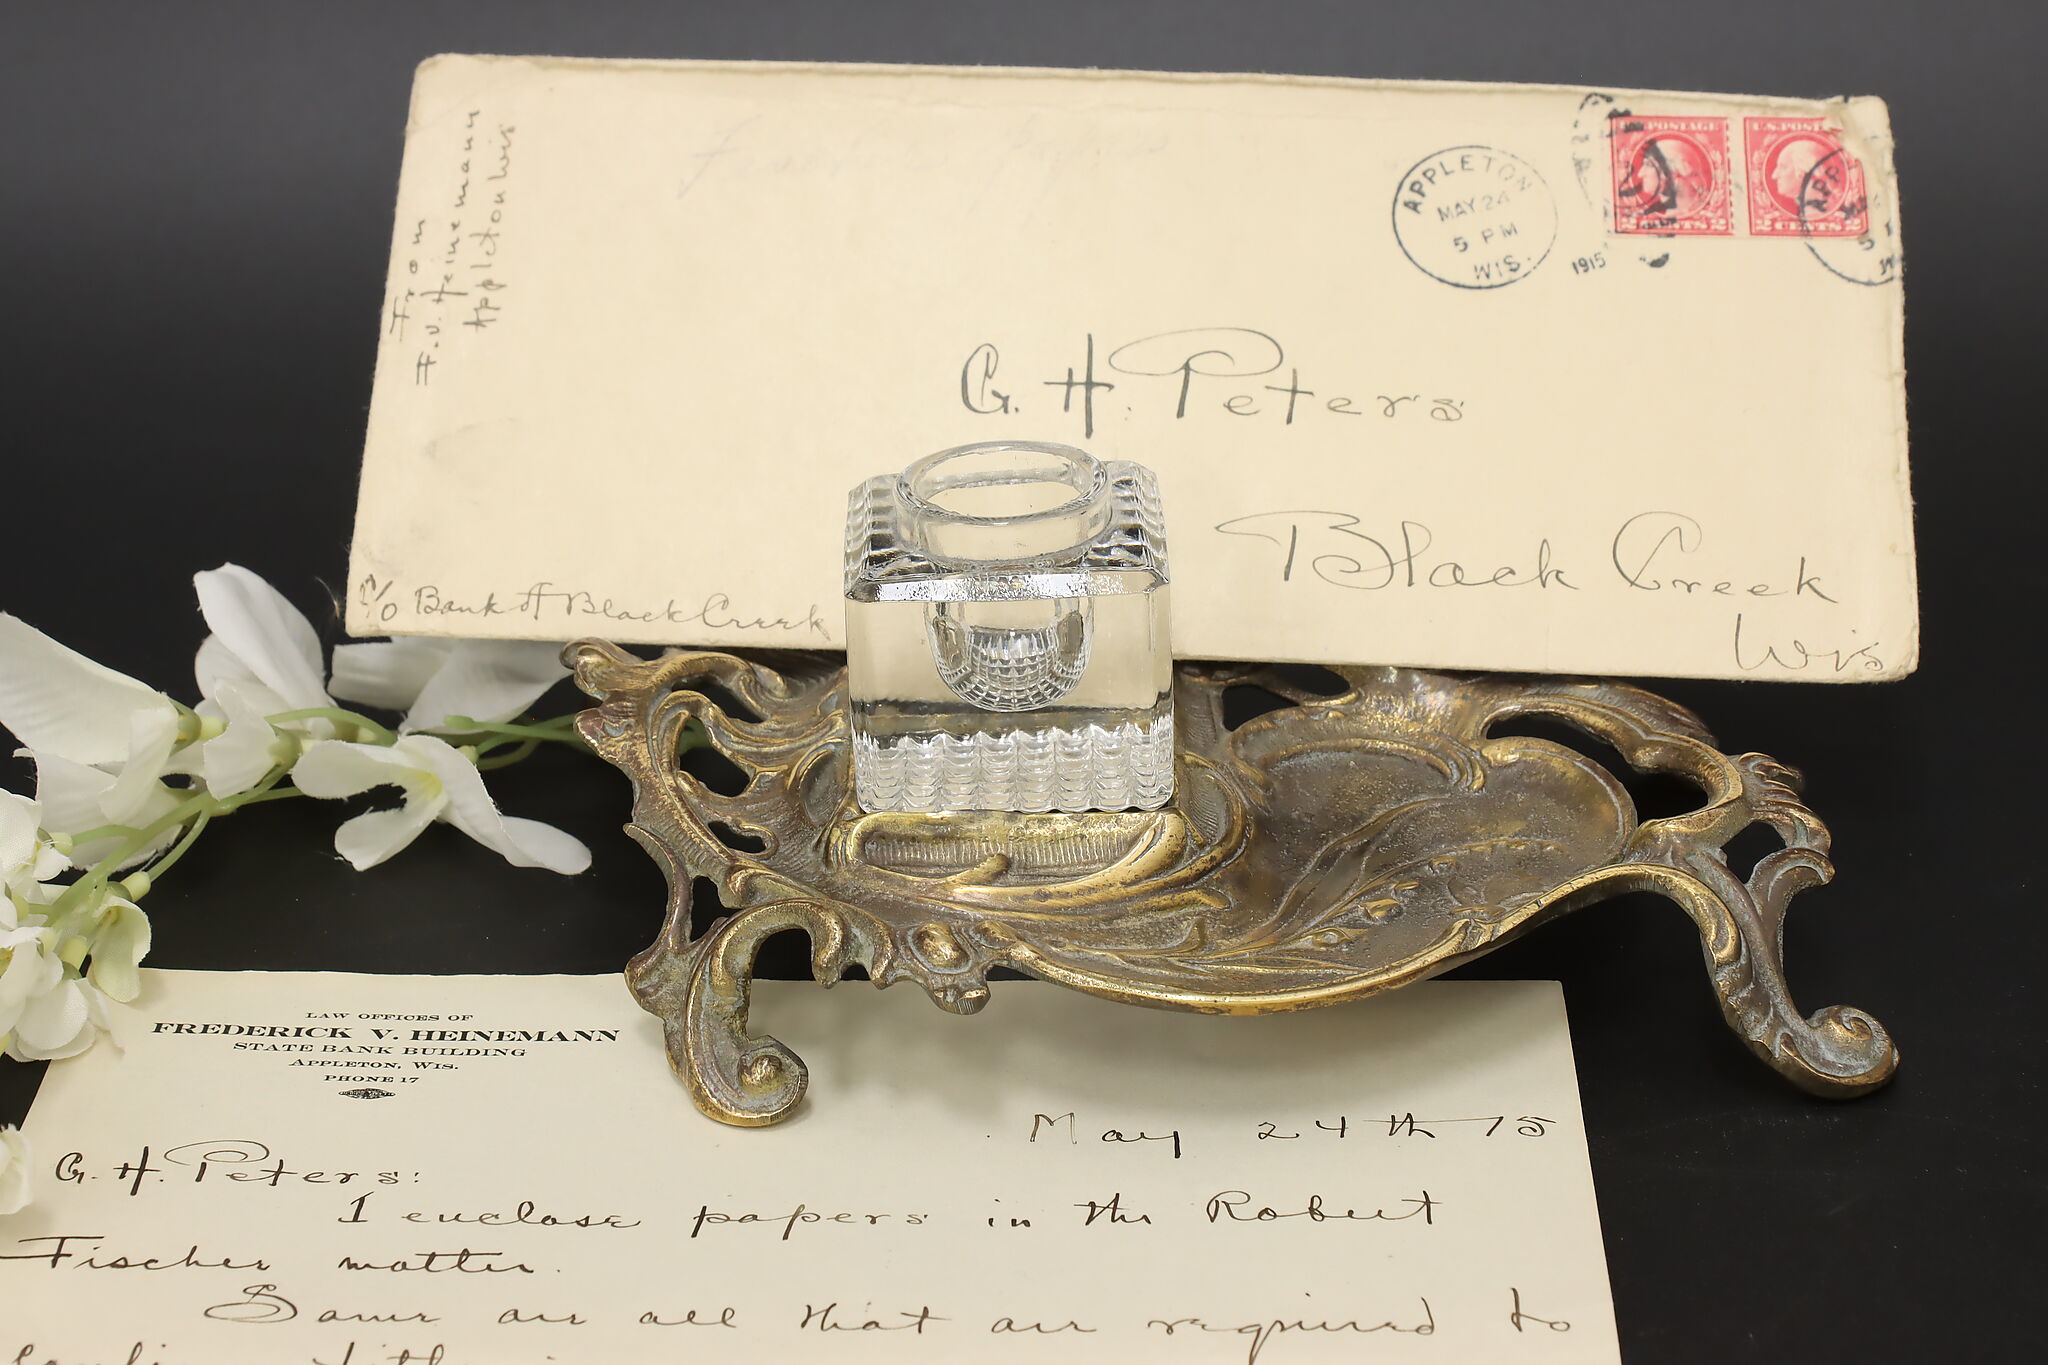 From
F.V. Heinemann
Appleton Wis
APPLETON
MAY 24
5 PM
WIS.
1915
U.S. POSTAGE
2 CENTS 2
U.S. POST
2 CENTS 2
APP
5
W
G. H. Peters
Black Creek
Wis
c/o Bank of Black Creek
LAW OFFICES OF
FREDERICK V. HEINEMANN
STATE BANK BUILDING
APPLETON, WIS.
PHONE 17
May 24th 15
G. H. Peters:
I enclose papers in the Robert
Fischer matter.
Same are all that are required to